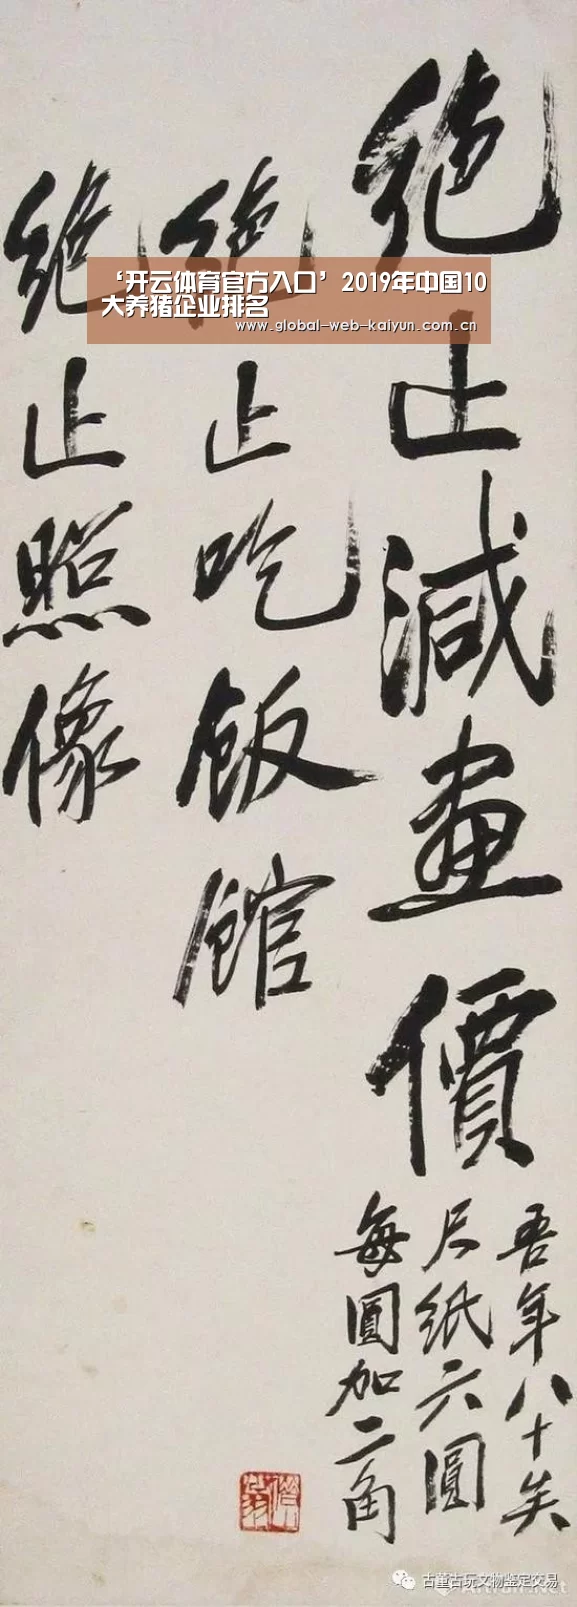 絶止減畫價
吾年八十矣
尺紙六圓
每圓加二角
絶止吃飯館
絶止照像
‘开云体育官方入口’2019年中国10
大养猪企业排名
www.global-web-kaiyun.com.cn
古董古玩文物鉴定交易